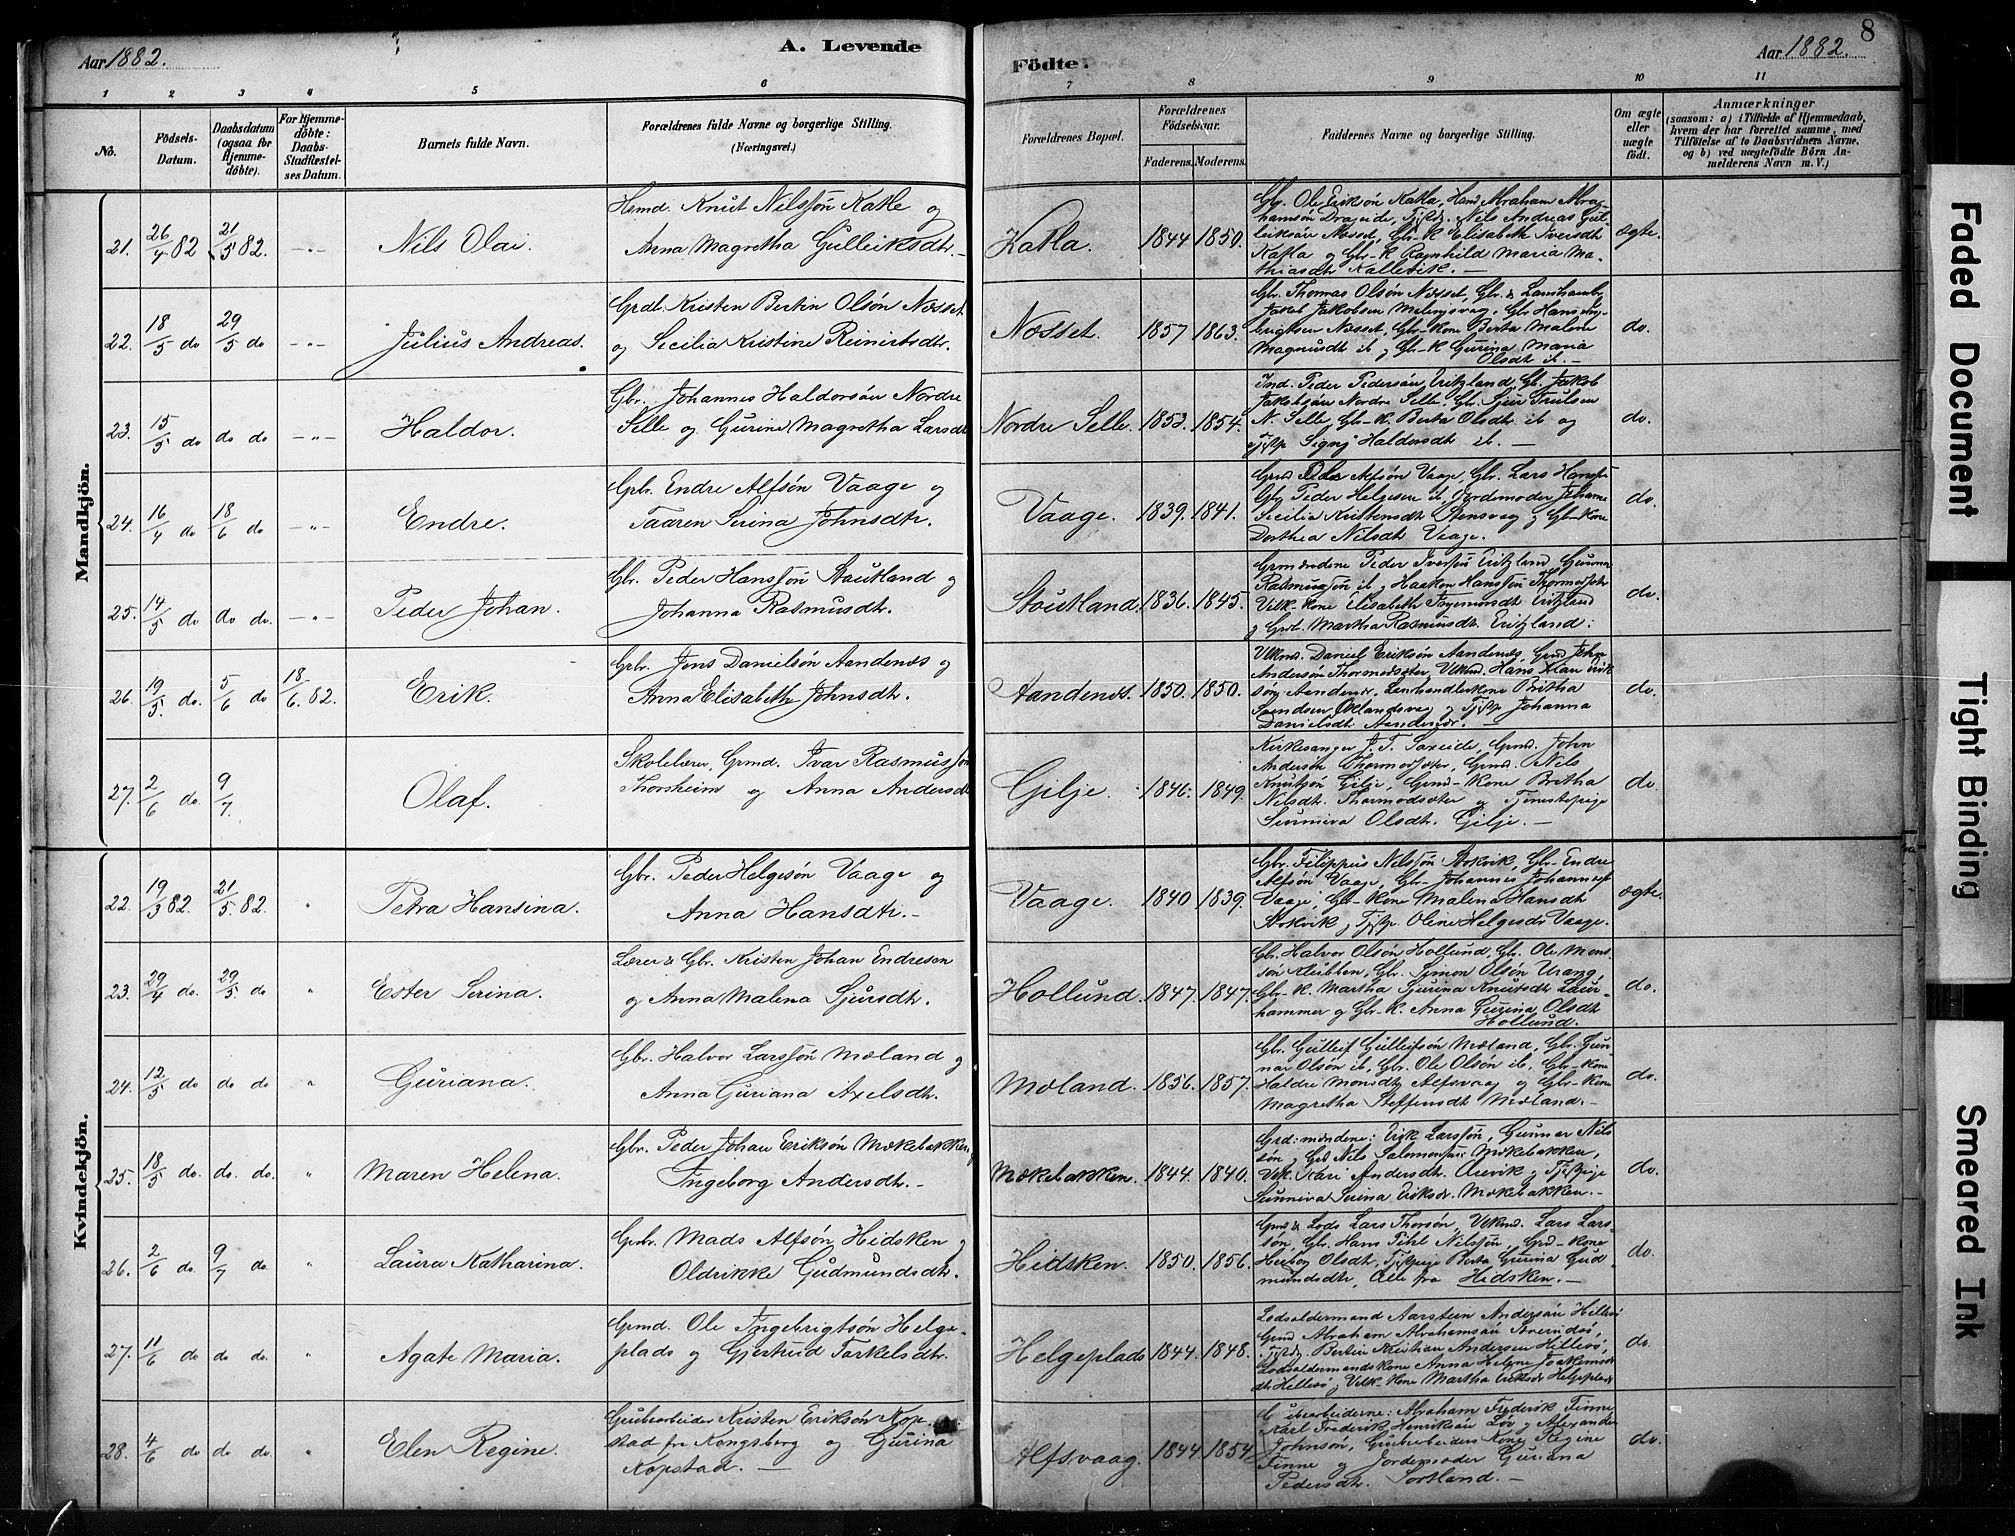 8
Aar 1882.
A. Levende
Födte.
Aar 1882.
1 2 3 4 5 6 7 8 9 10 11
No.
Födsels-
Datum.
Daabsdatum
(ogsaa for
Hjemme-
döbte).
For Hjemme-
döbte:
Daabs-
Stadfæstel-
ses Datum.
Barnets fulde Navn.
Forældrenes fulde Navne og borgerlige Stilling.
(Næringsvei.)
Forældrenes Bopæl.
Forældrenes
Födselsaar.
Faderens. Moderens.
Faddernes Navne og borgerlige Stilling.
Om ægte
eller
uægte
födt.
Anmærkninger
(saasom: a) i Tilfælde af Hjemmedaab,
hvem der har forrettet samme, med
Tilföielse af to Daabsvidners Navne,
og b) ved uægtefödte Börn An-
melderens Navn m. V.)
Mandkjön.
21. 26/4 82 21/5 82. —"— Nils Olai
Hemd. Knut Nilssön Katle og
Anna Magretha Gulleiksdtr. —
Katla. 1844 1850.
Gbr. Ole Eriksön Katla, Hemd Abraham Abra-
hamsön Drageide, Tjstdr. Nils Andreas Gul-
leiksön Nosset, Gbr-K Elisabeth Iversdtr
Katla og Gbr-K Ragnhild Maria Ma-
thiasdtr Kallevik. —
ægte.
22. 18/5 do 29/5 do —"— Julius Andreas.
Grdbr. Kristen Bertin Olsön Næsset
og Secilia Kristine Reinertsdtr.
Næsset. 1857 1863.
Gbr. Thomas Olsön Næsset, Gbr. & Landhandler
Jakob Jakobsen Melingsvag, Gbr Hans Ing-
brigtsen Næsset, Gbr-kone Berta Malene
Magnusdt ib og Gbr-K Gurina Maria
Olsdt ib. —
do.
23. 15/5 do do do —"— Haldor.
Gbr. Johannes Haldorsön Nordre
Selle og Gurine Magretha Larsdt
Nordre Selle. 1853. 1854.
Ind. Peder Pedersön Eritzland, Gb. Jakob
Jakobsön Nordre Selle, Gbr. Sjur Trulsen
N. Selle Gbr-K. Berta Olsdt ib og
Tjstp Signy Haldorsdt ib. —
do.
24. 16/4 do 18/6 do —"— Endre.
Gbr. Endre Alfsön Vaage og
Taaren Serina Johnsdtr.
Vaage. 1839. 1841.
Grmd Peder Alfsön Vaage, Gbr. Lars Hanssön
Gbr Peder Helgesen ib, Jordemoder Johanne
Secilia Kristensdt Stensvag og Gbr-Kone
Dorthea Nilsdt Vaage.
do.
25. 14/5 do do do. —"— Peder Johan.
Gbr. Peder Hanssön Stautland og
Johanna Rasmusdtr.
Stoutland. 1836. 1845.
Grmændene Peder Iversön Eritzland, Gunnar
Rasmussön ib, Haaken Hanssön Thormodsæter
Vilk-kone Elisabeth Ingemundt Eritzland
og Grdbr. Martha Rasmusdt. Eritzland.
do.
26. 19/5. do. 5/6 do 18/6. 82. Erik.
Gbr. Jens Danielsön Aandenæs og
Anna Elisabeth Johnsdtr.
Aandenæs. 1850. 1850.
Vlkmd. Daniel Eriksön Aandenæs Grmd John
Andersön Thormodsæter, Vlkmd. Hans Xian Erik-
sön Aandenæs. Landhandlerkone Britha
Svendsen Oklandsvag og Tjstp Johanna
Danielsdt Aandenæs. —
do.
27. 2/6 do. 9/7. Olaf.
Skolelærer, Grmd. Ivar Rasmussön
Thorsheim og Anna Andersdt
Gilje. 1846. 1849.
Kirkesanger J. T. Saxeide, Grmd. John
Andersön Thormodsæter, Grmd. Nils
Knutsön Gilje, Grmd-Kone Britha
Nilsdt. Thormodsæter og Tjenestepige
Sunniva Olsdt. Gilje. —
do
Kvindekjön.
22. 19/3 82. 21/5. 82. " Petra Hansina.
Gbr. Peder Helgesön Vaage og
Anna Hansdtr. —
Vaage. 1840 1839.
Gbr. Filippus Nilssön Stokvik, Gbr-Endre
Alfsön Vaage, Gbr-Johannes Johannessön
Vaage, Gbr-Kone Malena Hansdt
Stokvik og Tjstp. Oline Helgesdt Vaage.
ægte.
23. 29/4 do. 29/5. do " Ester Serina.
Lærer & Gbr. Kristen Johan Endresen
og Anna Malena Sjursdtr.
Hollund. 1847. 1847.
Gbr. Halvor Olsön Hollund, Gbr. Ole Mons-
sön Klubben, Gbr. Simon Olsön Urang,
Gbr-K. Martha Sjurina Knutsdt Laur-
hammer og Gbr-K. Anna Gurina Olsdt
Hollund.
do.
24. 12/5 do do do " Guriana.
Gbr. Halvor Larssön Moland og
Anna Guriana Axelsdtr.
Moland. 1856. 1857.
Gbr. Gulleif Gulleifsön Moland, Gbr. Gun-
nar Olsön ib, Gbr. Ole Olsön ib, Gbr-Kone
Haldre Monsdt Alfsvaag og Gbr-Kone
Magretha Steffensdt Moland. —
do.
25. 18/5 do. do. do. " Maren Helena.
Gbr. Peder Johan Eriksön Mækebakken,
Ingeborg Andersdtr. —
Mækebakken. 1844. 1840.
Grd:mændene: Erik Larssön, Gunnar Nils
sön og Grd Nils Salomonsön Mækebakken,
Vlk. Kari Andersdt. Aarvik og Tjstpige
Sunniva Serina Eriksdt. Mækebakken. —
do.
26. 2/6 do. 9/7 do. " Laura Katharina.
Gbr. Mads Alfsön Hidsken og
Oldrikke Gudmundsdtr.
Hidsken. 1850. 1856.
Grmd & Lods Lars Thorsön, Vlkmd. Lars Lars-
sön, Gbr. Hans Pihl Nilssön, Grd-kone
Herborg Olsdt, Tjstpige Berta Gurina Gud-
mundsdtr, Alle fra Hidsken. —
do.
27. 11/6 do do do. " Agate Maria.
Grmd. Ole Ingebrigtsön Helge-
plads og Gjertrud Torkelsdtr.
Helgeplads 1844. 1848.
Lodsoldermand Aarsteen Andersön Hillesö
Grmd Abraham Abrahamsön
Tjstdr. Bertin Kristian Andersen Hillesö,
Lodsoldermandskone Anna Helene Joakimsd-
dtr Hillesö og Vilk-Kone Martha Eriksdt Helgeplads
do.
28. 4/6 do do do. " Elen Regine.
Grubearbeider Kristen Eriksön Kop-
stad fra Kongsberg og Gurina
Kopstad. —
Alfsvaag. 1844. 1854.
Grubearbeiderne: Abraham Frederik Finne
Karl Frederik Henriksön Löv og Alexander
Johnsön, Grubearbeiders Kone Regine
Finne og Jordemoder Guriana
Pedersdtr. Sortland. —
do.
Faded Document
Tight Binding
Smeared Ink